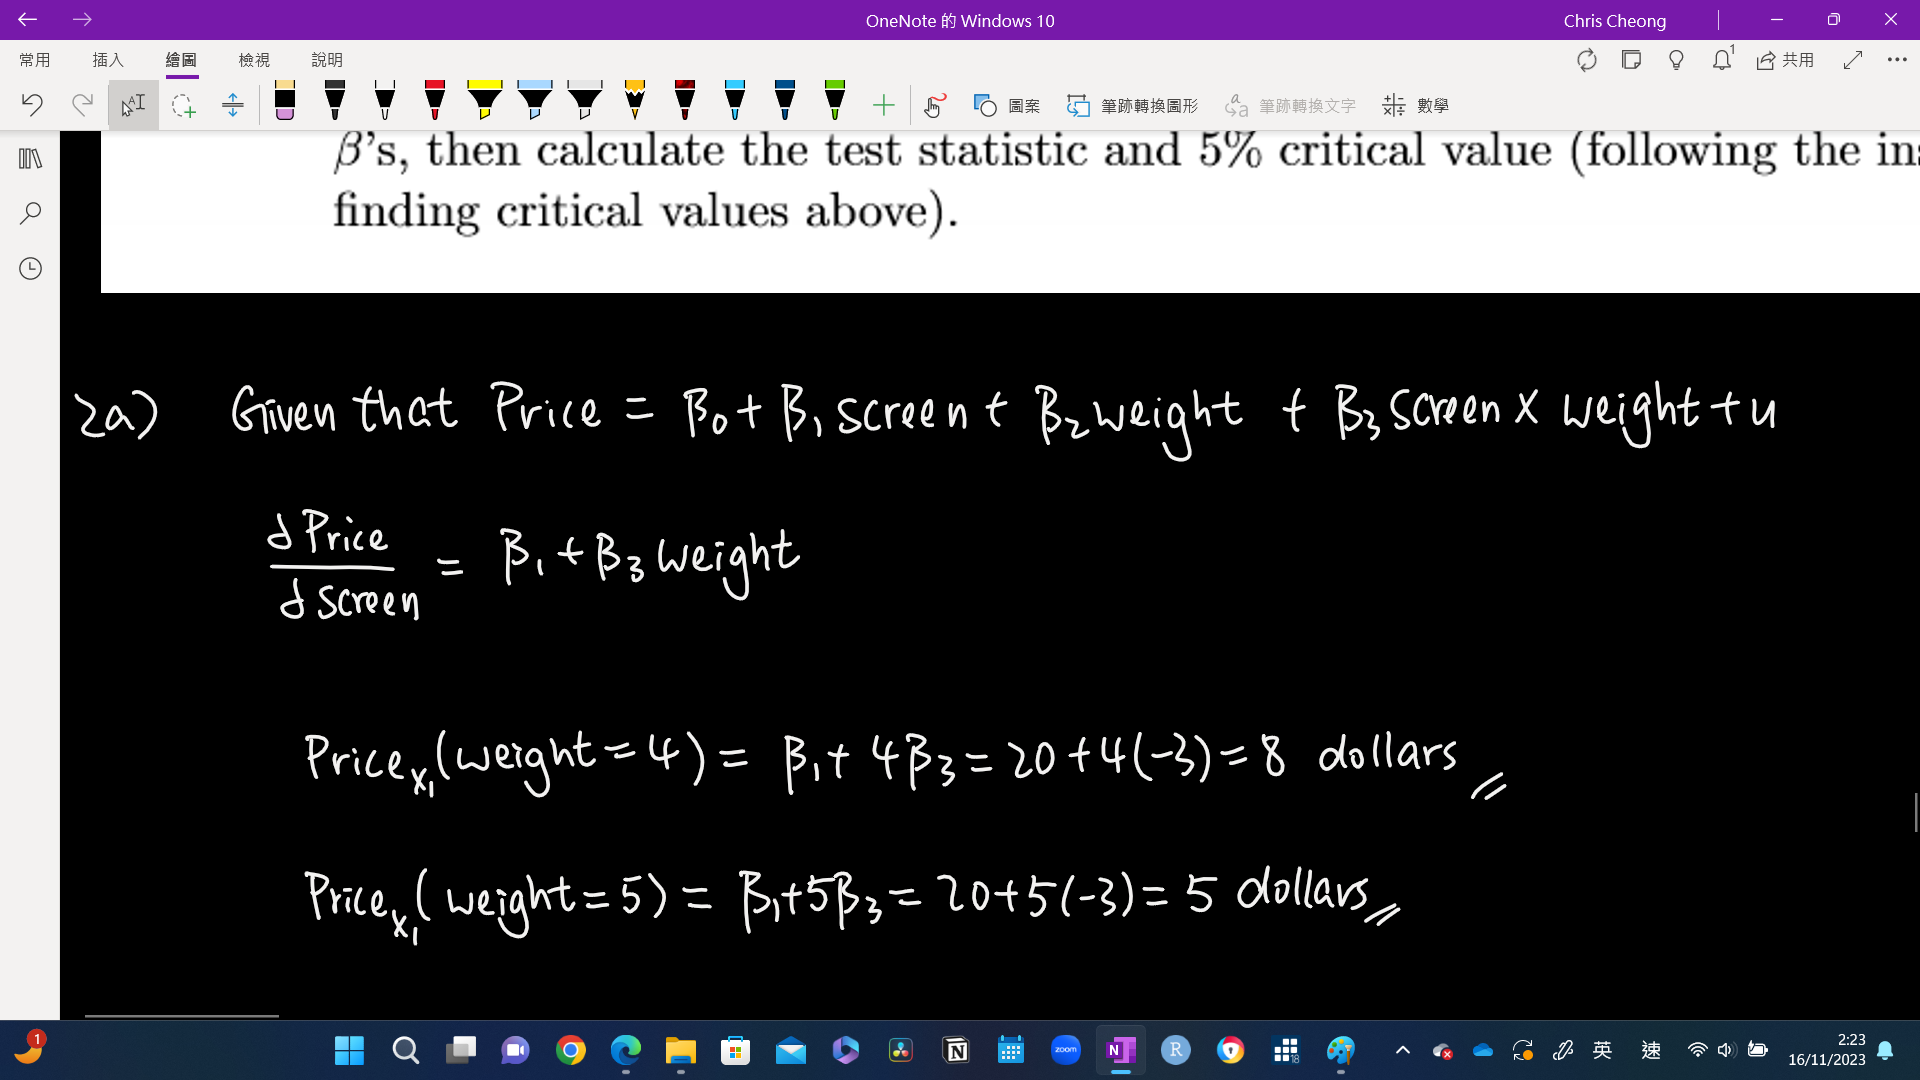 OneNote 的 Windows 10
Chris Cheong
常用 插入 繪圖 檢視 說明
1
共用
圖案 筆跡轉換圖形 筆跡轉換文字 數學
β's, then calculate the test statistic and 5% critical value (following the ins
finding critical values above).
2a) Given that Price = β₀ + β₁ screen + β₂ weight + β₃ screen × weight + u
dPrice
dscreen = β₁ + β₃ weight
Priceₓ₁(weight = 4) = β₁ + 4β₃ = 20 + 4(-3) = 8 dollars
Priceₓ₁(weight = 5) = β₁ + 5β₃ = 20 + 5(-3) = 5 dollars
1
zoom
N
N
R
18
英
速
2:23
16/11/2023